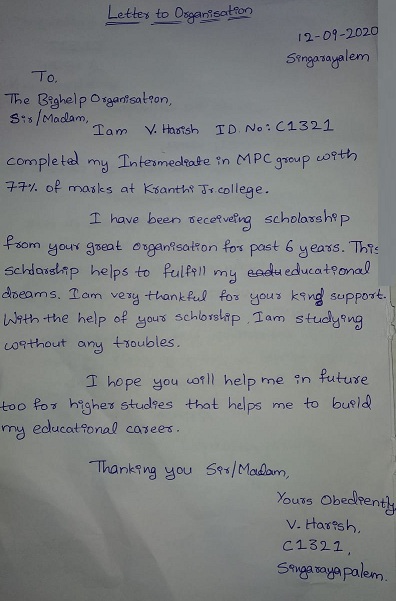 Letter to Organisation
12-09-2020
Singarayalem
To,
The Bighelp Organisation,
Sir/Madam,
Iam V. Harish ID No: C1321
completed my Intermediate in MPC group with
77% of marks at Kranthi Jr.college.
I have been receiveing scholarship
from your great organisation for past 6 years. This
scholarship helps to fulfill my educational
dreams. Iam very thankful for your kind support.
With the help of your schlorship. Iam studying
without any troubles.
I hope you will help me in future
too for higher studies that helps me to build
my educational career.
Thanking you Sir/Madam,
Yours Obediently
V. Harish,
C1321,
Singarayapalem.